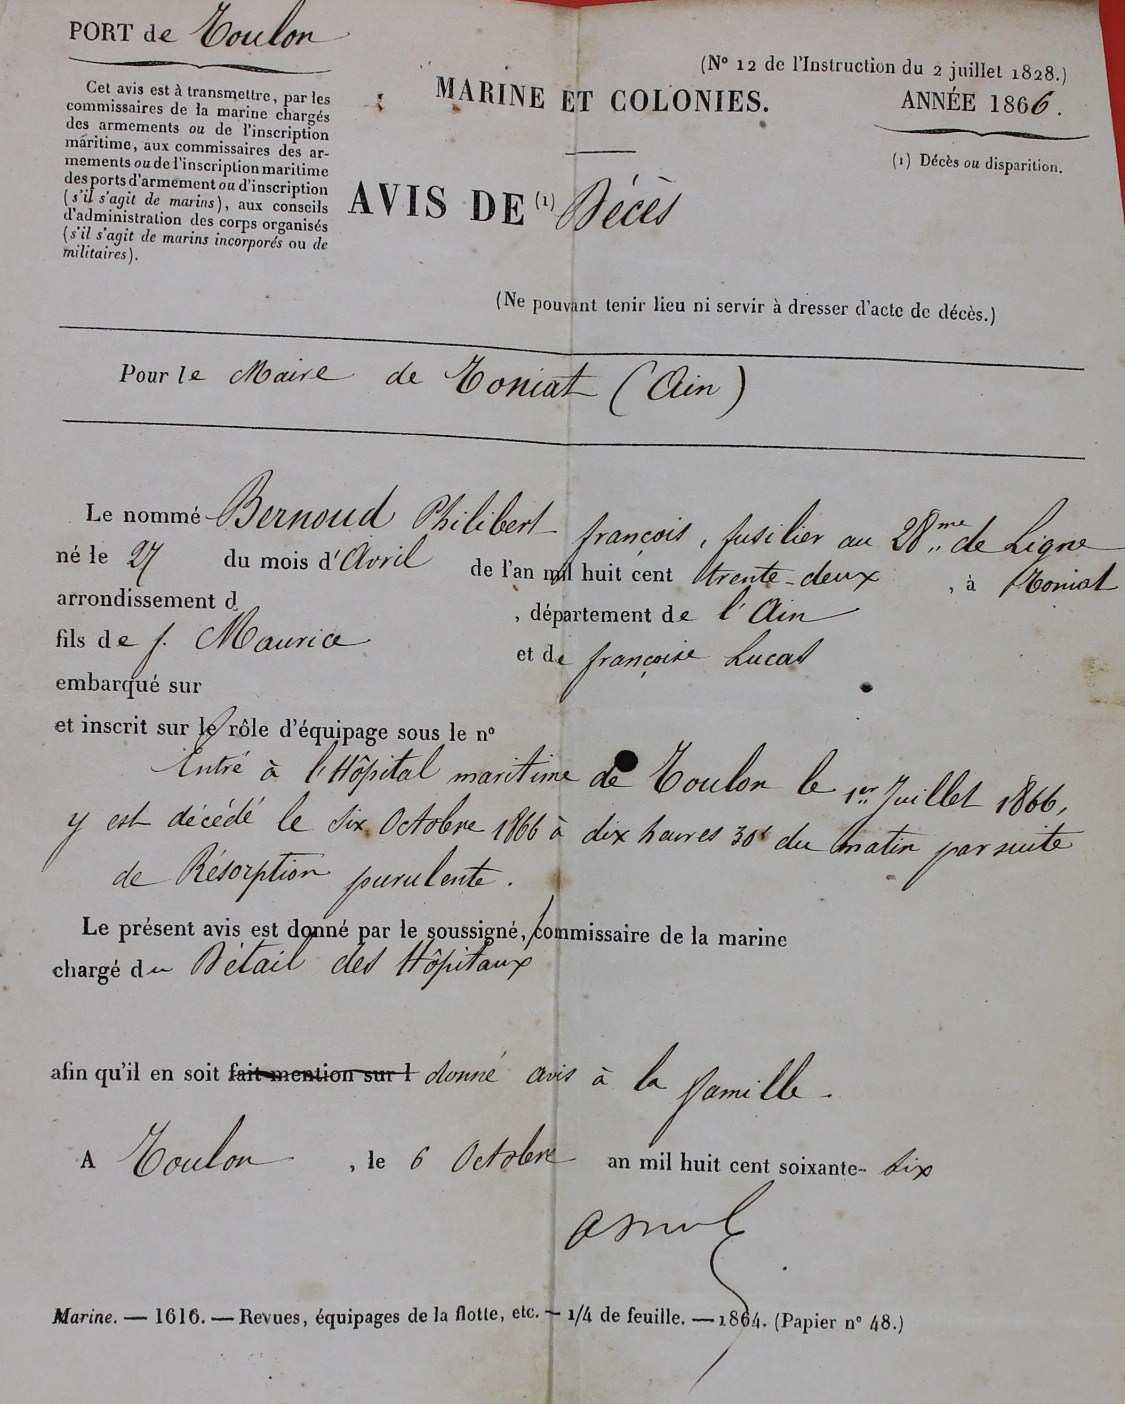 PORT de Toulon
(N° 12 de l'Instruction du 2 juillet 1828.)
MARINE ET COLONIES.
ANNÉE 1866.
Cet avis est à transmettre, par les
commissaires de la marine chargés
des armements ou de l'inscription
maritime, aux commissaires des ar-
mements ou de l'inscription maritime
des ports d'armement ou d'inscription
(s'il s'agit de marins), aux conseils
d'administration des corps organisés
(s'il s'agit de marins incorporés ou de
militaires).
(1) Décès ou disparition.
AVIS DE (1) Décès
(Ne pouvant tenir lieu ni servir à dresser d'acte de décès.)
Pour le Maire de Toniat (Ain)
Le nommé Bernoud Philibert françois, fusilier au 28me de Ligne
né le 27 du mois d'Avril de l'an mil huit cent trente-deux, à Toniat
arrondissement d , département de l'Ain
fils de f. Maurice et de françoise Lucas
embarqué sur
et inscrit sur le rôle d'équipage sous le n°
Entré à l'Hôpital maritime de Toulon le 1er Juillet 1866,
y est décédé le six Octobre 1866 à dix heures 30 du matin par suite
de Résorption purulente.
Le présent avis est donné par le soussigné, commissaire de la marine
chargé du Détail des Hôpitaux
afin qu'il en soit fait mention sur l donné avis à la famille.
A Toulon, le 6 Octobre an mil huit cent soixante-six
Marine. — 1616. — Revues, équipages de la flotte, etc. — 1/4 de feuille. — 1864. (Papier n° 48.)